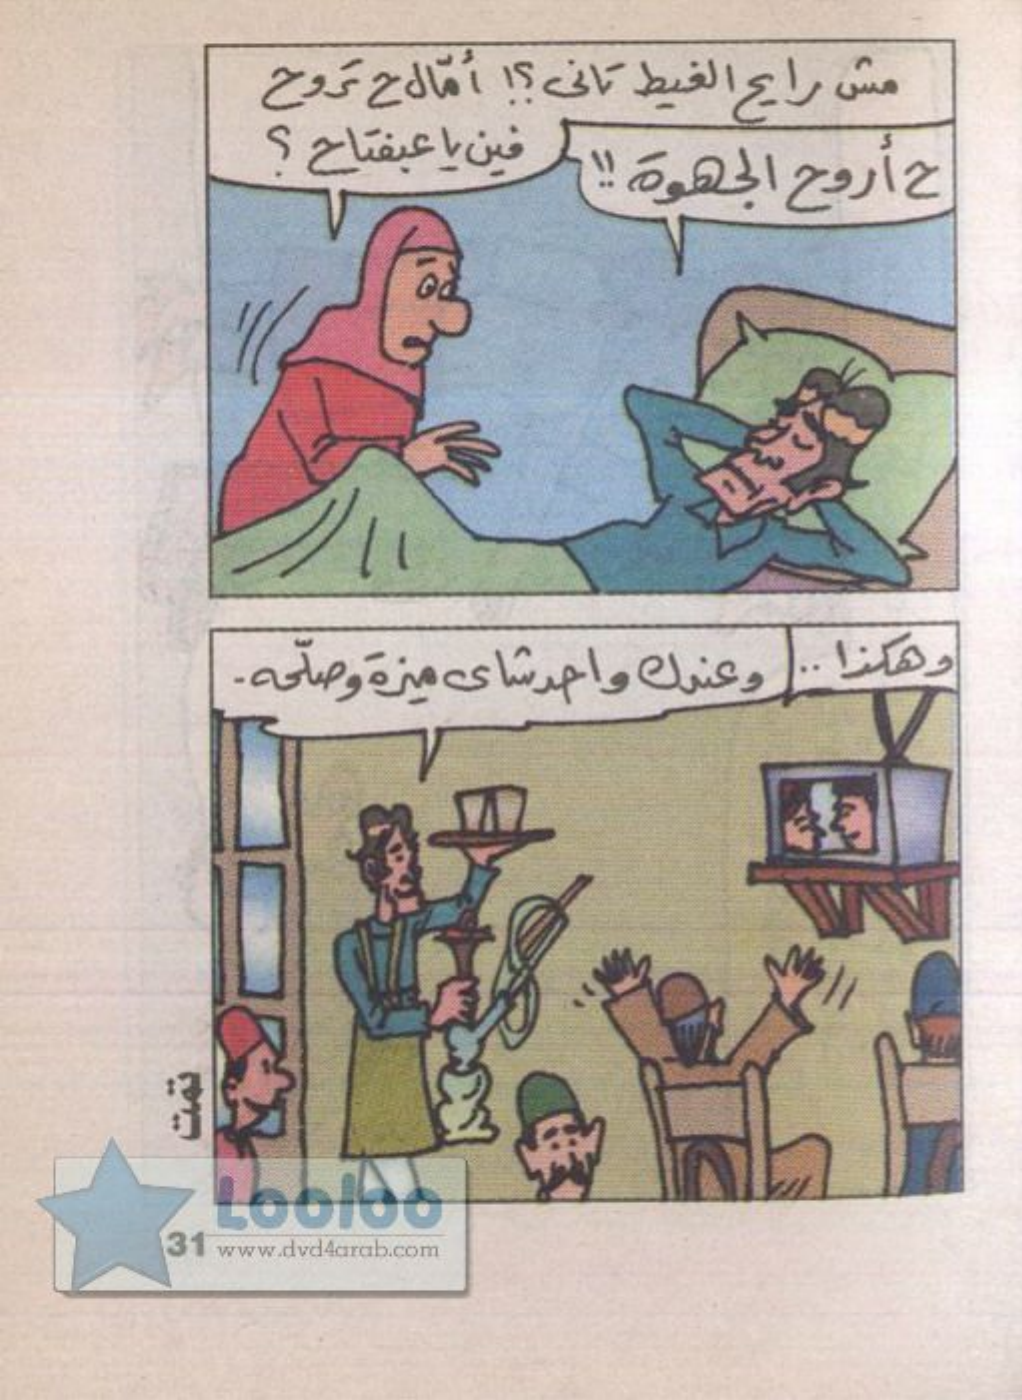 مش رايح الغيط تانى ؟! أمّال ح تروح
فين يا عبفتاح ؟
ح أروح الجهوة !!
وهكذا ..
وعندك واحد شاى ميزة وصلّحه.
تمت
31
Looloo
www.dvd4arab.com